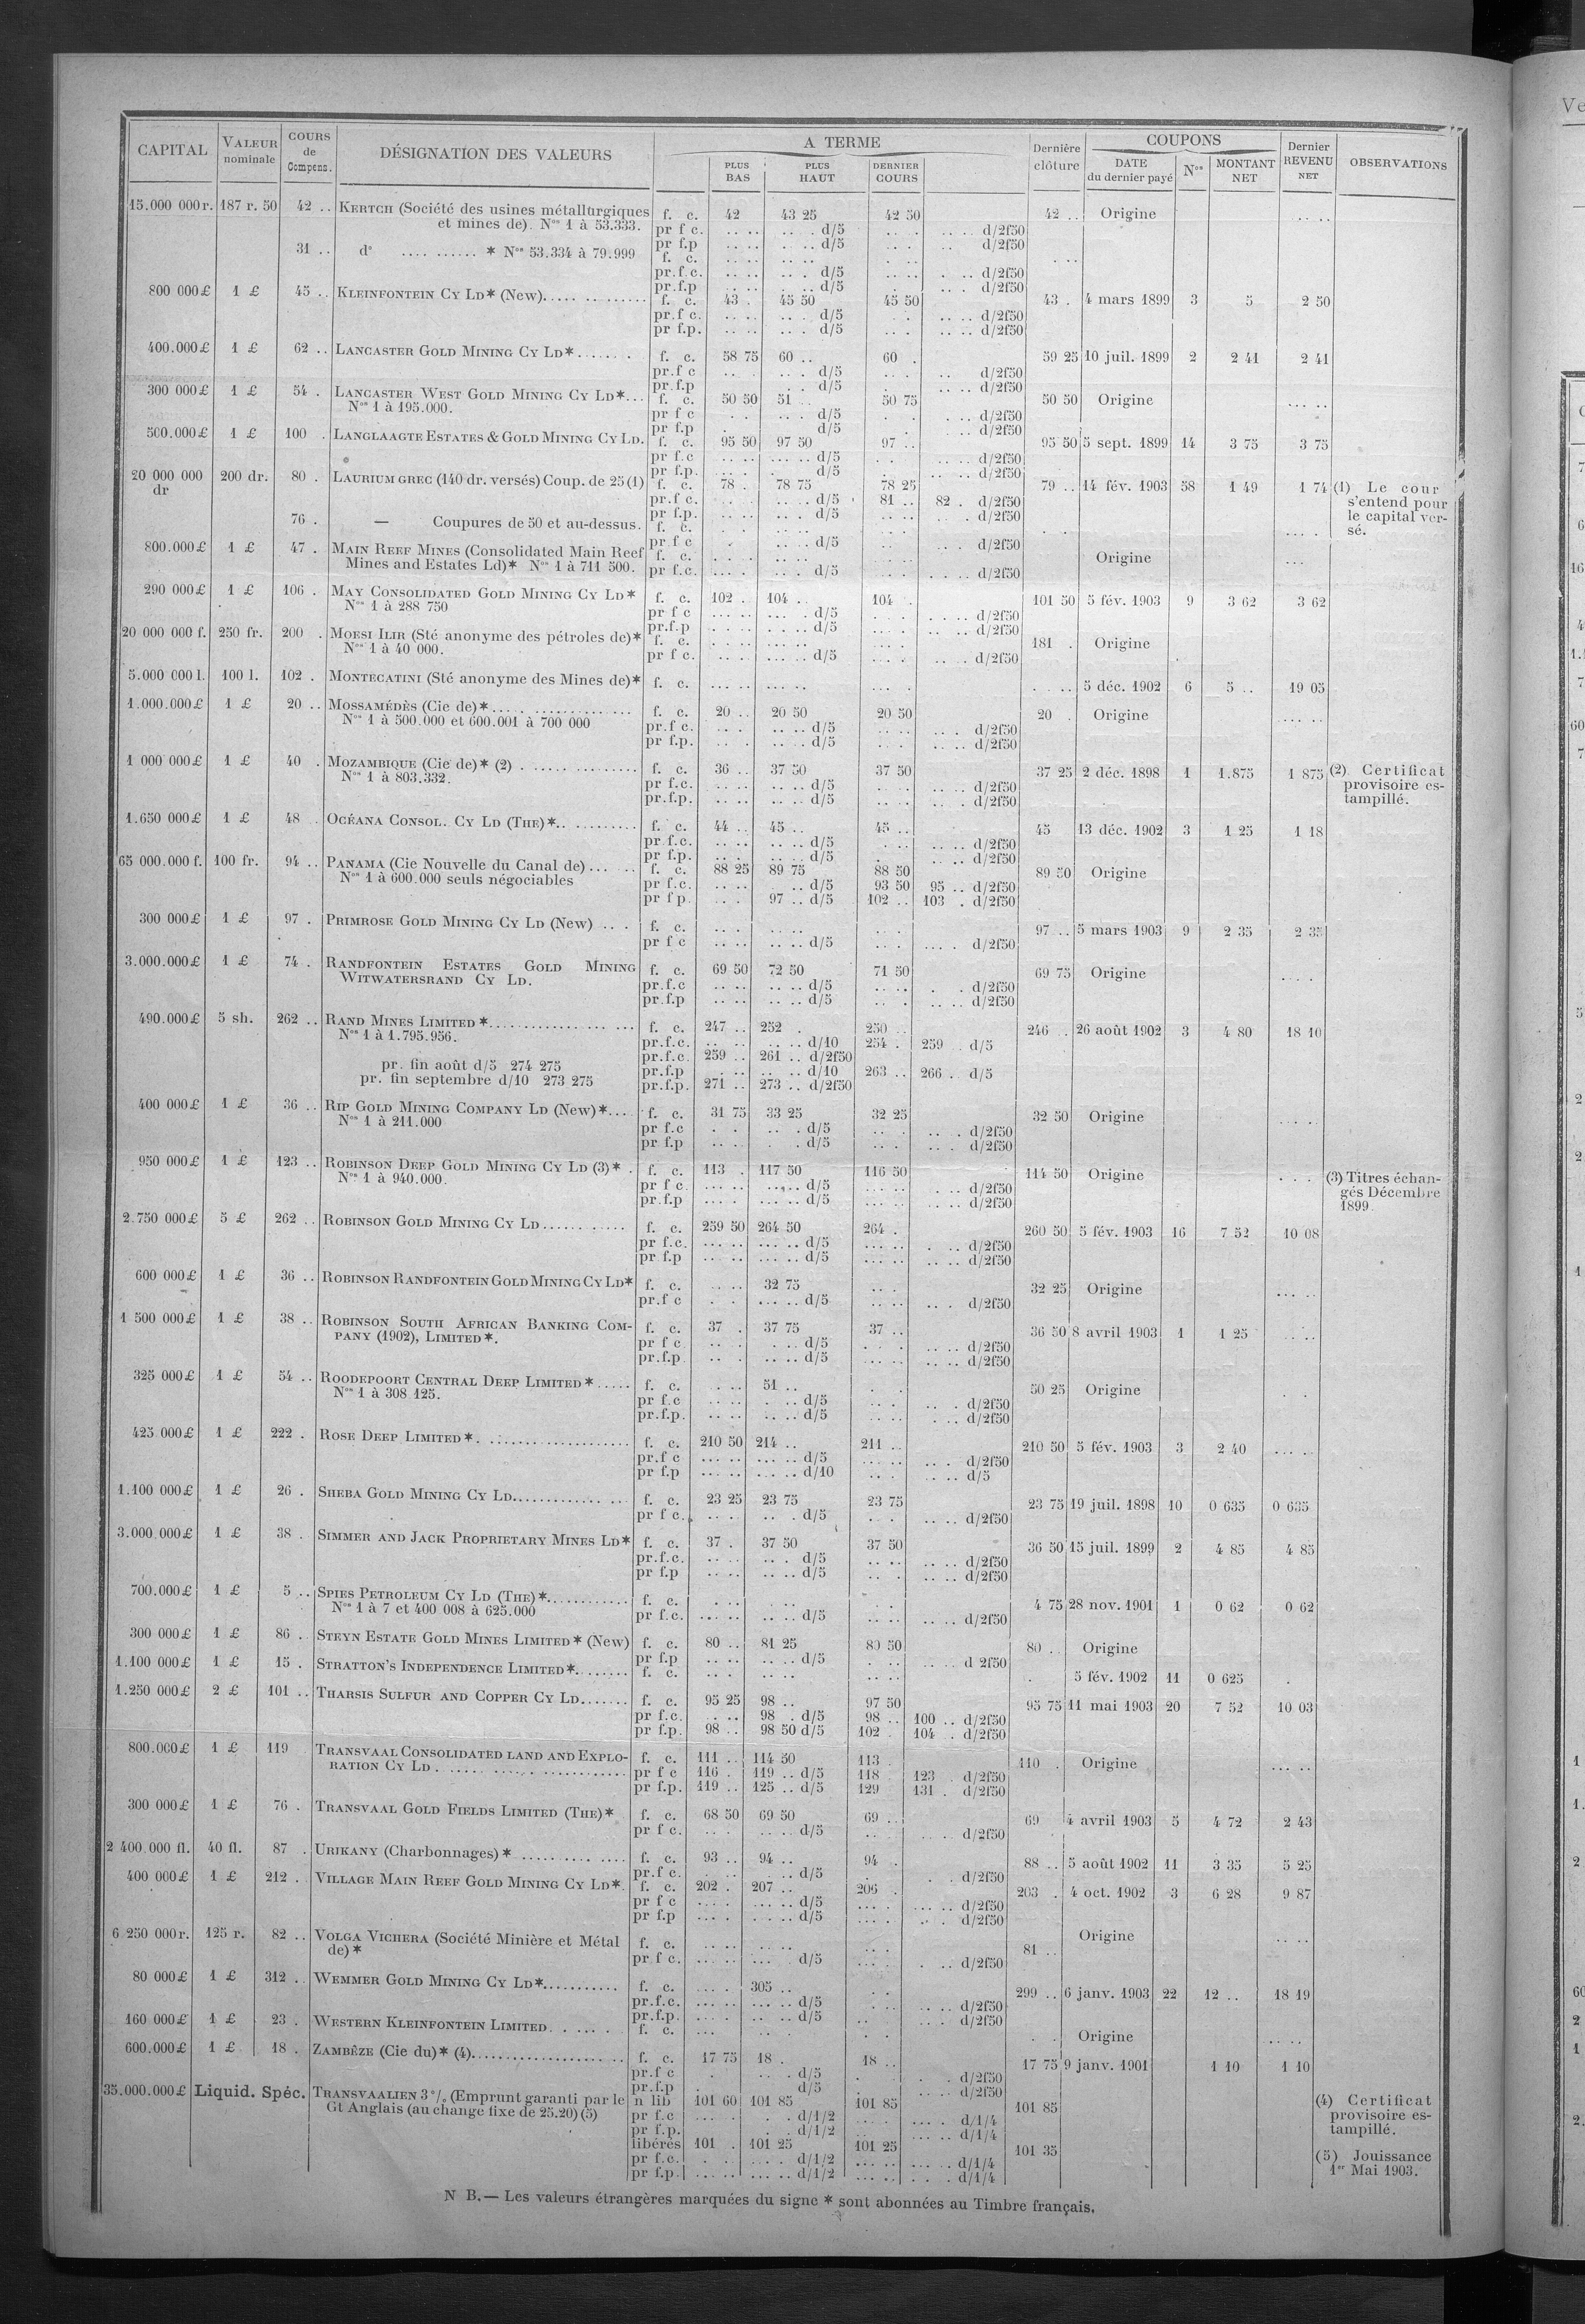 CAPITAL VALEUR nominale COURS de Compens. DÉSIGNATION DES VALEURS A TERME PLUS BAS PLUS HAUT DERNIER COURS Dernière clôture COUPONS DATE du dernier payé Nos MONTANT NET Dernier REVENU NET OBSERVATIONS
15.000 000 r. 187 r. 50 42 .. KERTCH (Société des usines métallurgiques f. c. 42 43 25 42 50 42 .. Origine .. ..
et mines de). Nos 1 à 53.333. pr f c. .. .. .. . d/5 .. . .. .. d/2f50
pr f.p .. .. . .. d/5 .. . .. d/2f50
31 .. do .... ...... * Nos 53.334 à 79.999 f. c. .. .. .. .. . .. . ..
pr.f.c. .. .. .. . d/5 .. .. . .. d/2f50
pr.f.p .. .. . .. d/5 .. . .. . d/2f50
800 000 £ 1 £ 45 .. KLEINFONTEIN CY LD* (New)..... f. c. 43 . 45 50 45 50 43 . 4 mars 1899 3 5 2 50
pr.f c. .. .. .. . d/5 . . .. .. d/2f50
pr f.p. .. .. .. . d/5 .. . .. .. d/2f50
400.000 £ 1 £ 62 .. LANCASTER GOLD MINING CY LD*...... f. c. 58 75 60 .. 60 . 59 25 10 juil. 1899 2 2 41 2 41
pr.f c .. .. . d/5 .. . .. d/2f50
pr.f.p . . d/5 .. . .. .. d/2f50
300 000 £ 1 £ 54 . LANCASTER WEST GOLD MINING CY LD*... f. c. 50 50 51 .. 50 75 50 50 Origine ... ..
Nos 1 à 195.000. pr f c . . .. . d/5 . . . .. d/2f50
pr f.p . d/5 .. d/2f50
500.000 £ 1 £ 100 . LANGLAAGTE ESTATES & GOLD MINING CY LD. f. c. 95 50 97 50 97 .. 95 50 5 sept. 1899 14 3 75 3 75
pr f.c .. .. ... .. d/5 . . .. .. d/2f50
pr f.p. .. . . d/5 .. .. d/2f50
20 000 000 dr 200 dr. 80 . LAURIUM GREC (140 dr. versés) Coup. de 25 (1) f. c. 78 . 78 75 78 25 79 .. 14 fév. 1903 58 1 49 1 74 (1) Le cour
pr.f c. . .. .. .. d/5 81 .. 82 . d/2f50 s'entend pour
pr f.p. .. .. .. . d/5 .. .. . d/2f50 le capital ver-
76 . — Coupures de 50 et au-dessus. f. c. . .. .. . .. . .. . sé.
pr f c . .. .. d/5 .. .. . d/2f50
800.000 £ 1 £ 47 . MAIN REEF MINES (Consolidated Main Reef f. c. . . . .. .. . . Origine ...
Mines and Estates Ld)* Nos 1 à 711 500. pr f.c. .. .. .. . d/5 .. . .. .. d/2f50
290 000 £ 1 £ 106 . MAY CONSOLIDATED GOLD MINING CY LD* f. c. 102 . 104 .. 104 . 101 50 5 fév. 1903 9 3 62 3 62
Nos 1 à 288 750 pr f c .. .. ... . d/5 .. . .. .. d/2f50
pr.f.p .. .. .. .. d/5 .. . .. .. d/2f50
20 000 000 f. 250 fr. 200 . MOESI ILIR (Sté anonyme des pétroles de)* f. c. .. .. .. .. .. . 181 . Origine
Nos 1 à 40 000. pr f c. .. . ... .. d/5 .. . .. .. d/2f50
5.000 000 l. 100 l. 102 . MONTECATINI (Sté anonyme des Mines de)* f. c. ... .. ... .. .. . . .. 5 déc. 1902 6 5 .. 19 05
1.000.000 £ 1 £ 20 .. MOSSAMÉDÈS (Cie de)*..... f. c. 20 .. 20 50 20 50 20 . Origine ... ..
Nos 1 à 500.000 et 600.001 à 700 000 pr.f c. .. . .. .. d/5 .. .. .. . d/2f50
pr f.p. .. . .. .. d/5 . . .. .. d/2f50
1 000 000 £ 1 £ 40 . MOZAMBIQUE (Cie de)* (2) ............... f. c. 36 .. 37 50 37 50 37 25 2 déc. 1898 1 1.875 1 875 (2) Certificat
Nos 1 à 803.332. pr f.c. .. .. .. .. d/5 .. . .. .. d/2f50 provisoire es-
pr.f.p. .. .. .. .. d/5 . . .. . d/2f50 tampillé.
1.650 000 £ 1 £ 48 . OCÉANA CONSOL. CY LD (THE)*.. ......... f. c. 44 .. 45 .. 45 .. 45 13 déc. 1902 3 1 25 1 18
pr f.c. .. .. .. .. d/5 . .. .. .. d/2f50
pr f.p. .. . .. .. d/5 . .. .. d/2f50
65 000.000 f. 100 fr. 94 .. PANAMA (Cie Nouvelle du Canal de)... .. f. c. 88 25 89 75 88 50 89 50 Origine
Nos 1 à 600.000 seuls négociables pr f.c. .. .. .. d/5 93 50 95 .. d/2f50
pr f p. .. . 97 .. d/5 102 .. 103 . d/2f50
300 000 £ 1 £ 97 . PRIMROSE GOLD MINING CY LD (New) .. . f. c. .. . .. .. .. . 97 .. 5 mars 1903 9 2 35 2 35
pr f c .. .. .. .. d/5 .. . ... . d/2f50
3.000.000 £ 1 £ 74 . RANDFONTEIN ESTATES GOLD MINING f. c. 69 50 72 50 71 50 69 75 Origine .. ..
WITWATERSRAND CY LD. pr.f.c .. .. .. .. d/5 .. .. . . d/2f50
pr.f.p .. .. .. .. d/5 .. . .. .. d/2f50
490.000 £ 5 sh. 262 .. RAND MINES LIMITED *................ f. c. 247 .. 252 . 250 .. 246 . 26 août 1902 3 4 80 18 10
Nos 1 à 1.795.956. pr.f.c. .. .. .. .. d/10 254 . 259 . d/5
pr.f.c. 259 .. 261 .. d/2f50
pr. fin août d/5 274 275 pr.f.p . .. .. .. d/10 263 .. 266 . d/5
pr. fin septembre d/10 273 275 pr.f.p. 271 .. 273 .. d/2f50
400 000 £ 1 £ 36 .. RIP GOLD MINING COMPANY LD (New)*.... f. c. 31 75 33 25 32 25 32 50 Origine .. ..
Nos 1 à 211.000 pr f.c . . .. . d/5 .. . .. . d/2f50
pr f.p .. . . . d/5 .. . .. . d/2f50
950 000 £ 1 £ 123 .. ROBINSON DEEP GOLD MINING CY LD (3)* . f. c. 113 . 117 50 116 50 114 50 Origine . . . (3) Titres échan-
Nos 1 à 940.000. pr f c. .. .. ... .. d/5 .. .. . .. d/2f50 gés Décembre
pr.f.p .. . ... .. d/5 .. .. .. .. d/2f50 1899.
2.750 000 £ 5 £ 262 .. ROBINSON GOLD MINING CY LD........... f. c. 259 50 264 50 264 . 260 50 5 fév. 1903 16 7 52 10 08
pr f.c. ... .. ... .. d/5 ... .. . .. d/2f50
pr f.p ... .. ... .. d/5 ... .. .. .. d/2f50
600 000 £ 1 £ 36 .. ROBINSON RANDFONTEIN GOLD MINING CY LD* f. c. .. .. 32 75 .. . 32 25 Origine ... ..
pr.f c . . ... .. d/5 .. .. .. . d/2f50
1 500 000 £ 1 £ 38 .. ROBINSON SOUTH AFRICAN BANKING COM- f. c. 37 . 37 75 37 .. 36 50 8 avril 1903 1 1 25 .. ..
PANY (1902), LIMITED*. pr f c .. . . .. d/5 . . . .. .. d/2f50
pr.f.p .. . .. .. d/5 ... .. .. .. d/2f50
325 000 £ 1 £ 54 .. ROODEPOORT CENTRAL DEEP LIMITED*..... f. c. . .. 51 .. . . 50 25 Origine .
Nos 1 à 308 125. pr f.c .. .. . .. d/5 .. . .. .. d/2f50
pr.f.p. .. .. .. .. d/5 .. .. . .. d/2f50
425.000 £ 1 £ 222 . ROSE DEEP LIMITED*. .................... f. c. 210 50 214 .. 211 .. 210 50 5 fév. 1903 3 2 40 ... ..
pr.f c ... .. ... .. d/5 ... .. .. . d/2f50
pr f.p ... .. ... .. d/10 .. . .. .. d/5
1.100 000 £ 1 £ 26 . SHEBA GOLD MINING CY LD............ .. f. c. 23 25 23 75 23 75 23 75 19 juil. 1898 10 0 635 0 635
pr f c. .. . .. . d/5 . . .. .. d/2f50
3.000.000 £ 1 £ 38 . SIMMER AND JACK PROPRIETARY MINES LD* f. c. 37 . 37 50 37 50 36 50 15 juil. 1899 2 4 85 4 85
pr.f.c. .. .. .. . d/5 .. .. .. .. d/2f50
pr f.p .. .. .. .. d/5 .. . .. .. d/2f50
700.000 £ 1 £ 5 .. SPIES PETROLEUM CY LD (THE)*............ f. c. . .. .. .. . 4 75 28 nov. 1901 1 0 62 0 62
Nos 1 à 7 et 400 008 à 625.000 pr f.c. ... .. .. .. d/5 .. .. .. .. d/2f50
300 000 £ 1 £ 86 . STEYN ESTATE GOLD MINES LIMITED* (New) f. c. 80 .. 81 25 80 50 80 .. Origine
pr f.p .. .. .. .. d/5 . .. .. .. d 2f50
1.100 000 £ 1 £ 15 . STRATTON'S INDEPENDENCE LIMITED*....... f. c. .. .. .. .. .. .. . 5 fév. 1902 11 0 625 .
1.250 000 £ 2 £ 101 .. THARSIS SULFUR AND COPPER CY LD....... f. c. 95 25 98 .. 97 50 95 75 11 mai 1903 20 7 52 10 03
pr f.c. . .. 98 . d/5 98 .. 100 .. d/2f50
pr f.p. 98 .. 98 50 d/5 102 . 104 .. d/2f50
800.000 £ 1 £ 119 TRANSVAAL CONSOLIDATED LAND AND EXPLO- f. c. 111 .. 114 50 113 . 110 . Origine ... ..
RATION CY LD. ........................ pr f c 116 . 119 .. d/5 118 123 . d/2f50
pr f.p. 119 .. 125 .. d/5 129 131 . d/2f50
300 000 £ 1 £ 76 . TRANSVAAL GOLD FIELDS LIMITED (THE)* f. c. 68 50 69 50 69 .. 69 4 avril 1903 5 4 72 2 43
pr f c. .. . .. .. d/5 .. .. .. d/2f50
2 400.000 fl. 40 fl. 87 . URIKANY (Charbonnages)* ........... f. c. 93 .. 94 .. 94 . 88 .. 5 août 1902 11 3 35 5 25
pr.f c. .. .. .. d/5 . . .. d/2f50
400 000 £ 1 £ 212 . VILLAGE MAIN REEF GOLD MINING CY LD*. f. c. 202 . 207 .. 206 . 203 . 4 oct. 1902 3 6 28 9 87
pr f c .. . ... .. d/5 .. . ... .. d/2f50
pr f.p .. . . .. .. d/5 .. .. .. . d/2f50
6 250 000 r. 125 r. 82 .. VOLGA VICHERA (Société Minière et Métal f. c. .. .. .. .. .. . 81 .. Origine .. ..
de)* pr f c. ... .. ... d/5 . .. d/2f50
80 000 £ 1 £ 312 . WEMMER GOLD MINING CY LD*........... f. c. .. . 305 .. . . 299 .. 6 janv. 1903 22 12 .. 18 19
pr.f.c. ... .. ... .. d/5 .. . .. .. d/2f50
pr.f.p. .. . .. .. d/5 .. .. .. d/2f50
160 000 £ 1 £ 23 . WESTERN KLEINFONTEIN LIMITED. . ... . f. c. ... .. . . . . . Origine .. ..
600.000 £ 1 £ 18 . ZAMBÈZE (Cie du)* (4)................. f. c. 17 75 18 . 18 .. 17 75 9 janv. 1901 1 10 1 10
pr.f c . . .. d/5 . . .. d/2f50
pr.f.p . d/5 . .. .. d/2f50
35.000.000 £ Liquid. Spéc. TRANSVAALIEN 3 % (Emprunt garanti par le n lib 101 60 101 85 101 85 101 85 (4) Certificat
Gt Anglais (au change fixe de 25.20) (5) pr f.c ... . . . d/1/2 .. . ... . d/1/4 provisoire es-
pr f.p. . . d/1/2 .. ... .. d/1/4 tampillé.
libérés 101 . 101 25 101 25 101 35 (5) Jouissance
pr f.c. . .. ... . d/1/2 ... .. ... .. d/1/4 1er Mai 1903.
pr f.p. ... .. ... .. d/1/2 ... .. . .. . d/1/4
N B.— Les valeurs étrangères marquées du signe * sont abonnées au Timbre français.